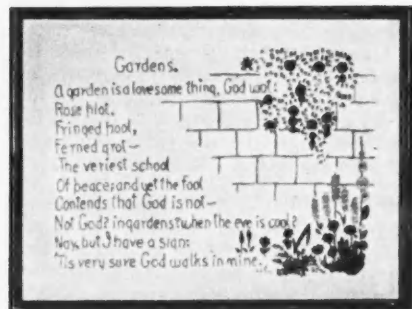 Gardens.
A garden is a lovesome thing, God wot!
Rose plot,
Fringed pool,
Ferned grot—
The veriest school
Of peace; and yet the fool
Contends that God is not—
Not God? in gardens? when the eve is cool?
Nay, but I have a sign:
'Tis very sure God walks in mine.